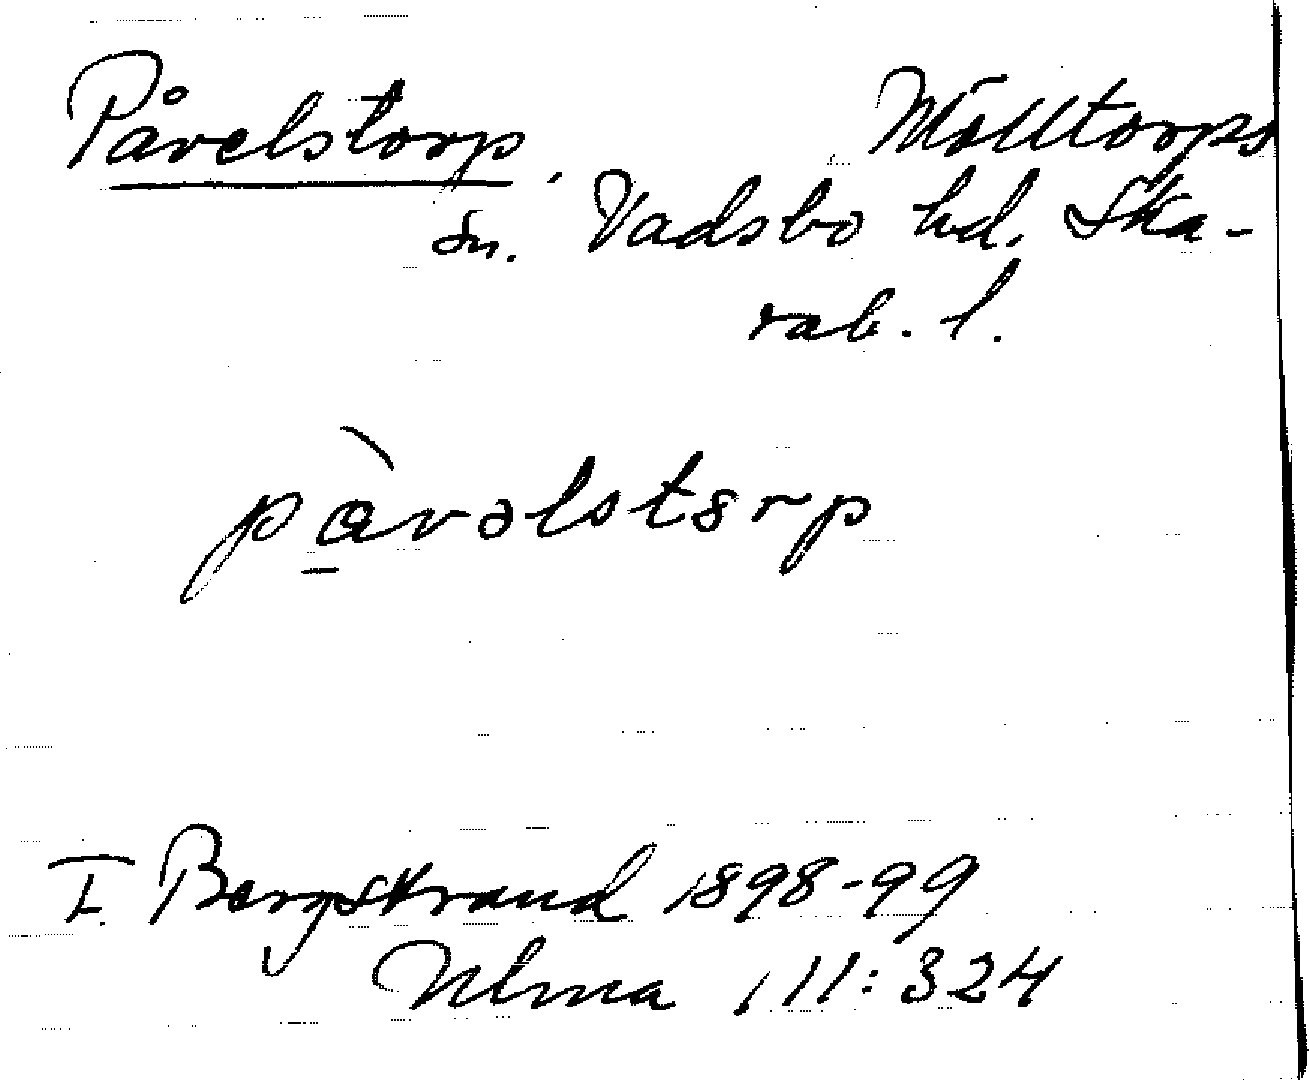 Påvelstorp, Mölltorps
sn. Vadsbo hd. Ska-
rab. l.
pàvəlstorp
T. Bergstrand 1898-99
Ulma 111:324